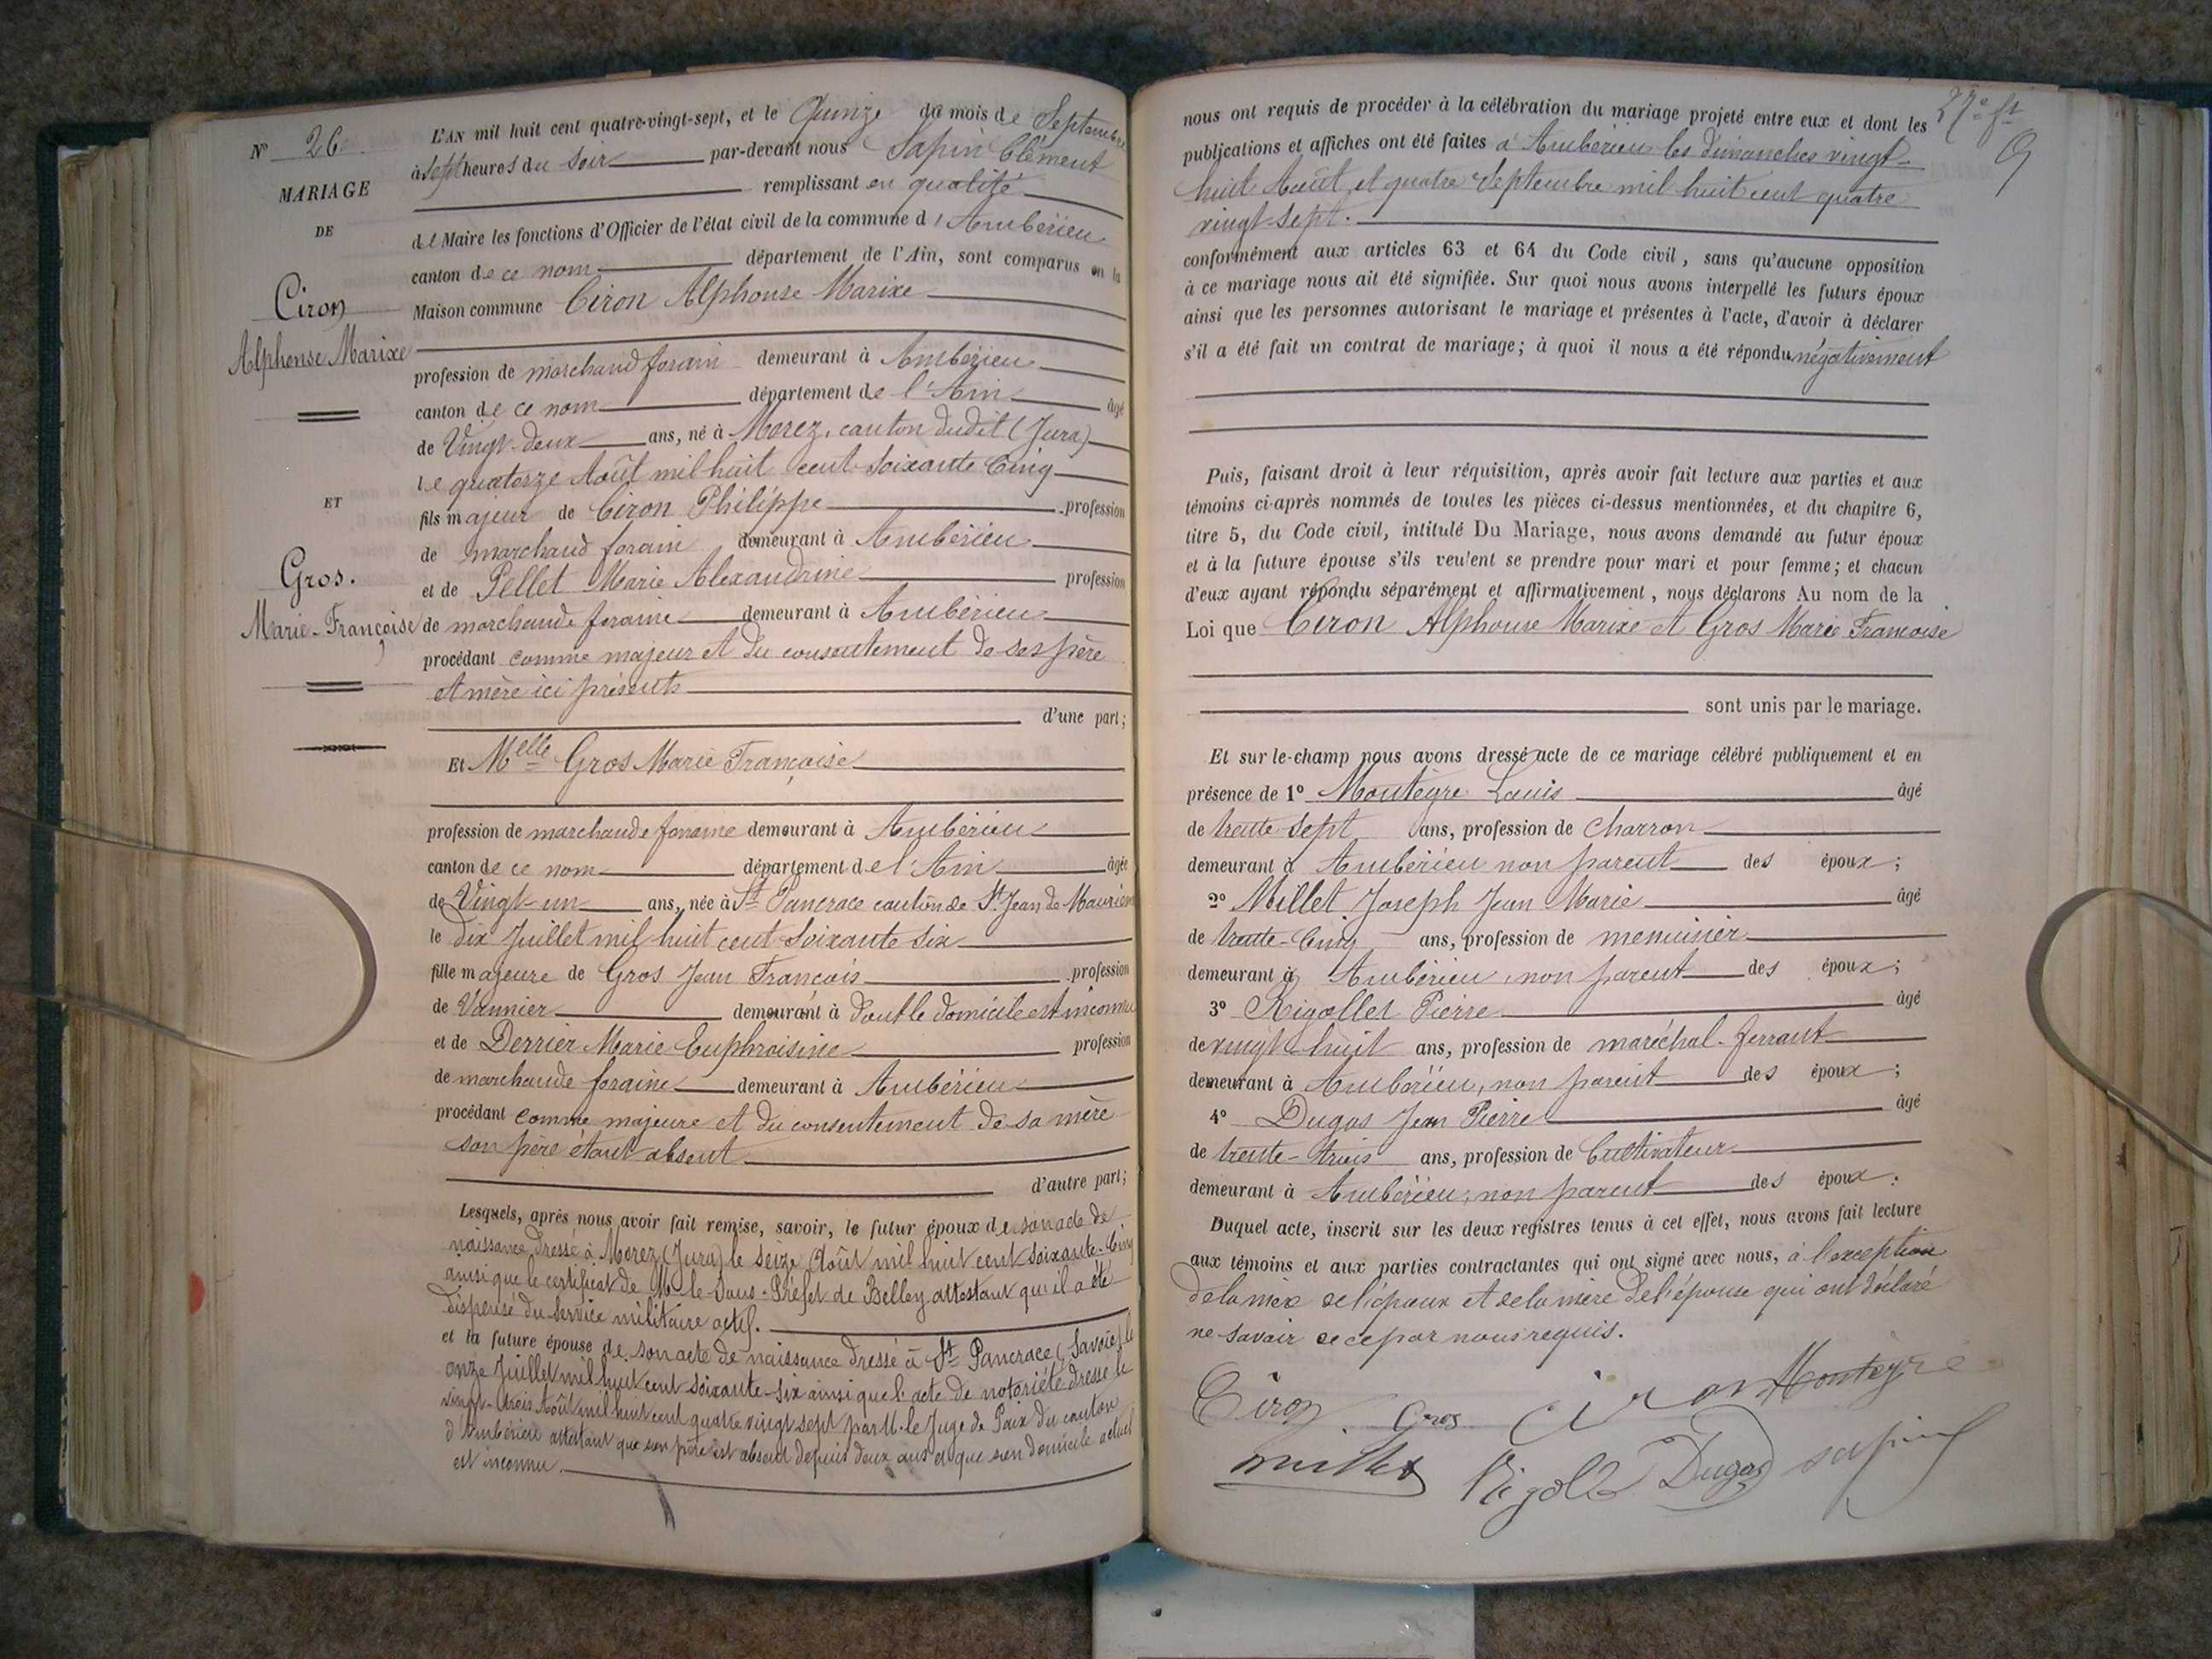 N° 26
MARIAGE
DE
Ciron
Alphonse Marixe
ET
Gros.
Marie-Françoise
L'AN mil huit cent quatre-vingt-sept, et le Quinze du mois de Septembre
à sept heures du soir par-devant nous Sapin Clément
remplissant en qualité
de Maire les fonctions d'Officier de l'état civil de la commune d'Ambérieu
canton de ce nom département de l'Ain, sont comparus en la
Maison commune Ciron Alphonse Marixe
profession de marchand forain demeurant à Ambérieu
canton de ce nom département de l'Ain âgé
de Vingt-deux ans, né à Morez, canton dudit (Jura)
le quatorze Août mil huit cent soixante Cinq
fils majeur de Ciron Philippe profession
de marchand forain demeurant à Ambérieu
et de Pellet Marie Alexandrine profession
de marchande foraine demeurant à Ambérieu
procédant comme majeur et du consentement de ses père
et mère ici présents
d'une part;
Et Melle Gros Marie Françoise
profession de marchande foraine demeurant à Ambérieu
canton de ce nom département de l'Ain âgée
de Vingt-un ans, née à St Pancrace canton de St Jean de Maurienne
le dix Juillet mil huit cent soixante six
fille majeure de Gros Jean François profession
de Vannier demeurant à dont le domicile est inconnu
et de Derrier Marie Euphroisine profession
de marchande foraine demeurant à Ambérieu
procédant comme majeure et du consentement de sa mère
son père étant absent
d'autre part;
Lesquels, après nous avoir fait remise, savoir, le futur époux de son acte de
naissance dressé à Morez (Jura) le seize Août mil huit cent soixante-Cinq
ainsi que le certificat de M. le Sous-Préfet de Belley attestant qu'il a été
dispensé du service militaire actif.
et la future épouse de son acte de naissance dressé à St Pancrace (Savoie) le
onze Juillet mil huit cent soixante-six ainsi que l'acte de notoriété dressé le
vingt-trois Août mil huit cent quatre vingt sept par M. le Juge de Paix du canton
d'Ambérieu attestant que son père est absent depuis deux ans et que son domicile actuel
est inconnu.
27e ft
nous ont requis de procéder à la célébration du mariage projeté entre eux et dont les
publications et affiches ont été faites à Ambérieu les dimanches vingt-
huit Août et quatre Septembre mil huit cent quatre
vingt-sept.
conformément aux articles 63 et 64 du Code civil, sans qu'aucune opposition
à ce mariage nous ait été signifiée. Sur quoi nous avons interpellé les futurs époux
ainsi que les personnes autorisant le mariage et présentes à l'acte, d'avoir à déclarer
s'il a été fait un contrat de mariage; à quoi il nous a été répondu négativement
Puis, faisant droit à leur réquisition, après avoir fait lecture aux parties et aux
témoins ci-après nommés de toutes les pièces ci-dessus mentionnées, et du chapitre 6,
titre 5, du Code civil, intitulé Du Mariage, nous avons demandé au futur époux
et à la future épouse s'ils veulent se prendre pour mari et pour femme; et chacun
d'eux ayant répondu séparément et affirmativement, nous déclarons Au nom de la
Loi que Ciron Alphonse Marixe et Gros Marie Françoise
sont unis par le mariage.
Et sur-le-champ nous avons dressé acte de ce mariage célébré publiquement et en
présence de 1° Monteyre Louis âgé
de trente-sept ans, profession de charron
demeurant à Ambérieu non parent des époux;
2° Millet Joseph Jean Marie âgé
de trente-Cinq ans, profession de menuisier
demeurant à Ambérieu, non parent des époux;
3° Rigollet Pierre âgé
de vingt-huit ans, profession de maréchal-ferrant
demeurant à Ambérieu, non parent des époux;
4° Dugas Jean Pierre âgé
de trente-trois ans, profession de Cultivateur
demeurant à Ambérieu, non parent des époux.
Duquel acte, inscrit sur les deux registres tenus à cet effet, nous avons fait lecture
aux témoins et aux parties contractantes qui ont signé avec nous, à l'exception
de la mère de l'époux et de la mère de l'épouse qui ont déclaré
ne savoir de ce par nous requis.
Ciron Gros Ciron Monteyre
Millet Rigollet Dugas Sapin